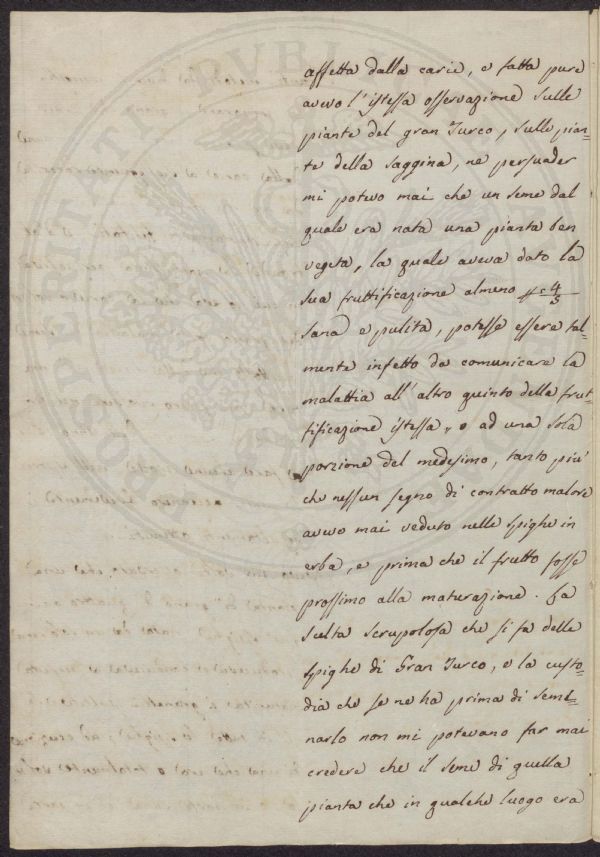 affetta dalla carie, e fatta pure
avevo l'istessa osservazione sulle
piante del gran Turco, sulle pian=
te della saggina, ne persuader
mi potevo mai che un seme dal
quale era nata una pianta ben
vegeta, la quale aveva dato la
sua fruttificazione almeno 4/5
sana e pulita, potesse essere tal=
mente infetto da comunicare la
malattia all'altro quinto della frut=
tificazione istessa, o ad una sola
porzione del medesimo, tanto piu'
che nessun segno di contratto malore
avevo mai veduto nelle spighe in
erba, e prima che il frutto fosse
prossimo alla maturazione. La
scelta scrupolosa che si fa delle
spighe di Gran Turco, e la custo=
dia che se ne ha prima di seme=
narlo non mi potevano far mai
credere che il seme di quella
pianta che in qualche luogo era
PROSPERITATI PUBLICAE